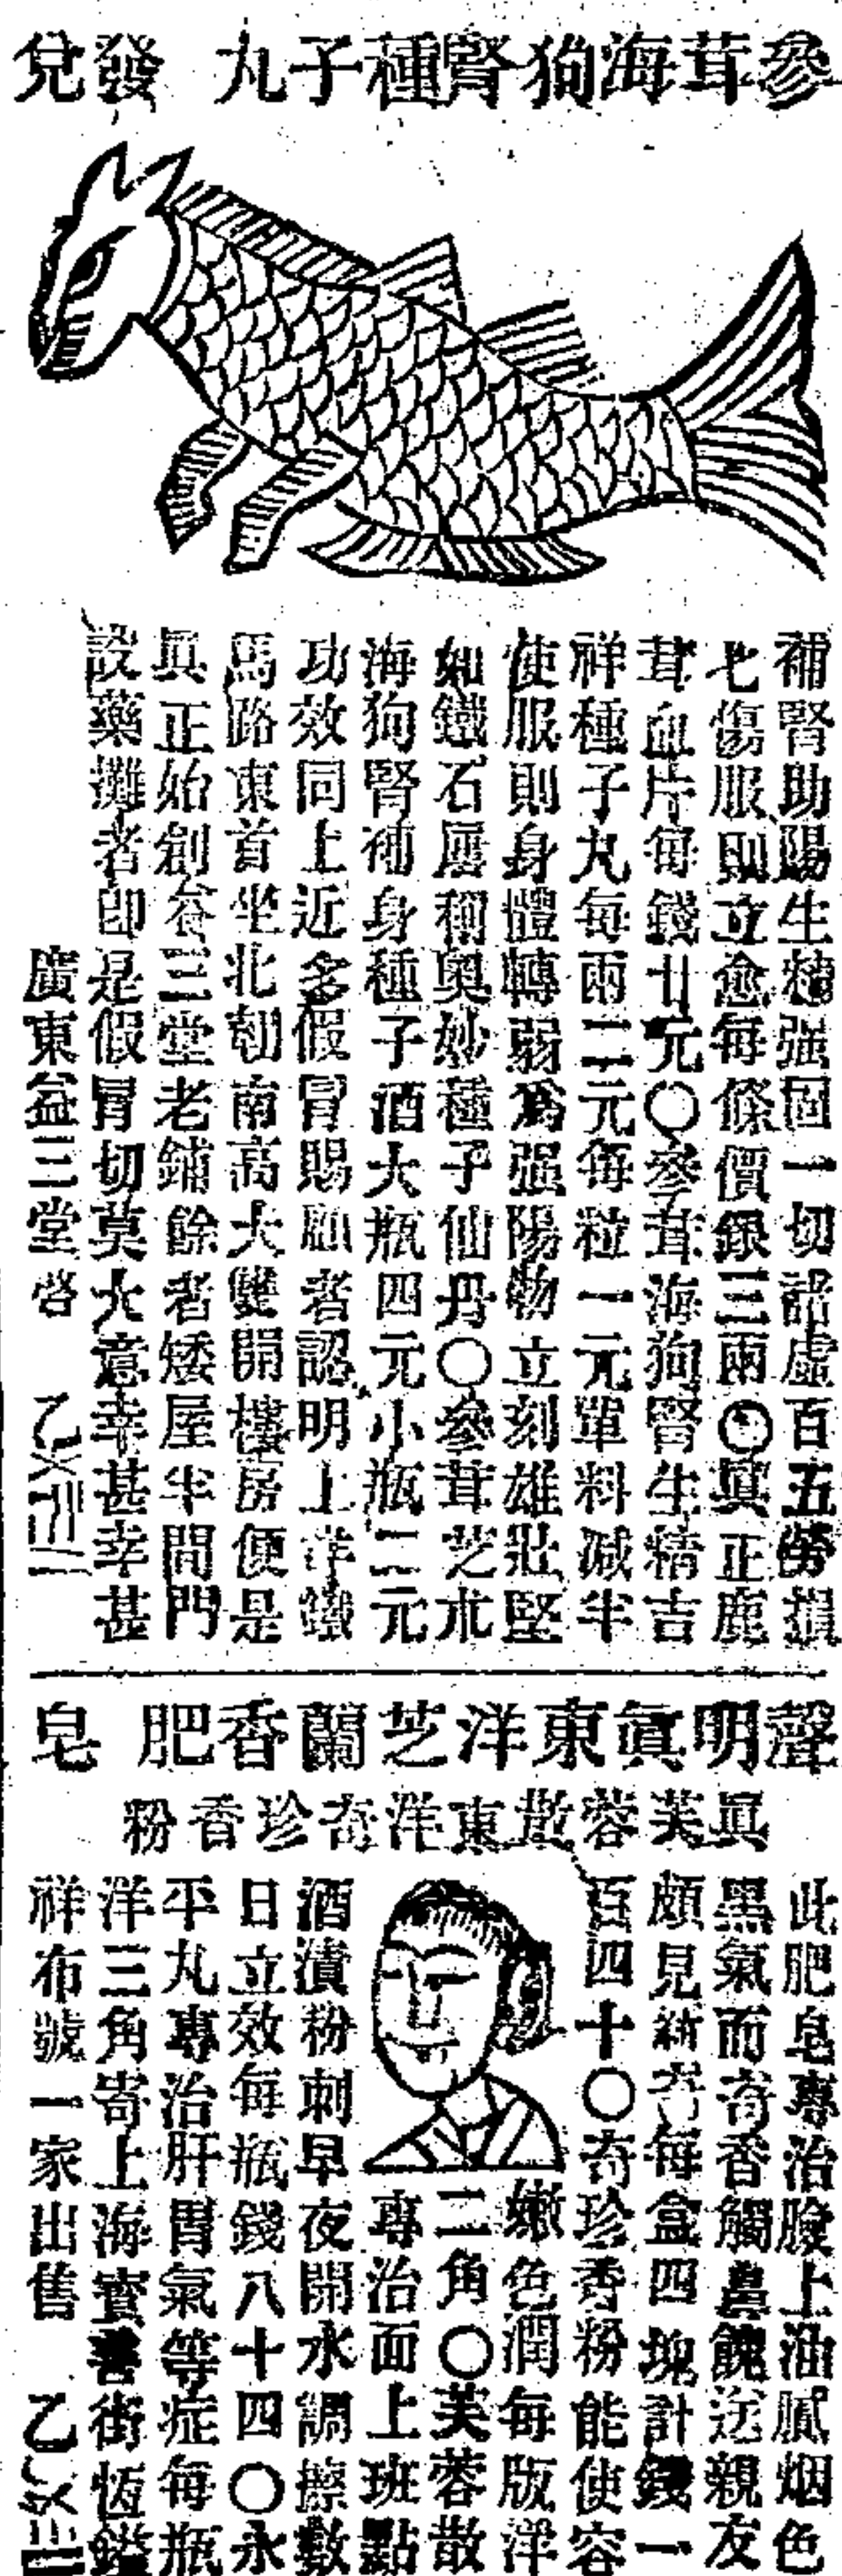 參茸海狗腎種子丸 發兌
補腎助陽生精强固一切諸虛百五勞損
七傷服則立愈每條價銀三兩〇真正鹿
茸血片每錢廿元〇參茸海狗腎生精吉
祥種子丸每兩二元每粒一元單料減半
使服則身體轉弱爲强陽物立刻雄壯堅
如鐵石屢稱奧妙種子仙丹〇參茸芝朮
海狗腎補身種子酒大瓶四元小瓶二元
功效同上近多假冒賜顧者認明上洋鐵
馬路東首坐北朝南高大雙開樓房便是
眞正始創益三堂老鋪餘者矮屋半間門
設藥攤者卽是假冒切莫大意幸甚幸甚
廣東益三堂啓 乙
聲明眞東洋芝蘭香肥皂
眞芙蓉散東洋奇珍香粉
此肥皂專治臉上油膩烟色
黑氣而奇香觸鼻餽送親友
頗見新奇每盒四塊計錢一
百四十〇奇珍香粉能使容
嫩色潤每版洋
二角〇芙蓉散
專治面上班點
酒漬粉刺早夜開水調擦數
日立效每瓶錢八十四〇永
平丸專治肝胃氣等症每瓶
洋三角寄上海寶善街恆鎰
祥布號一家出售 乙